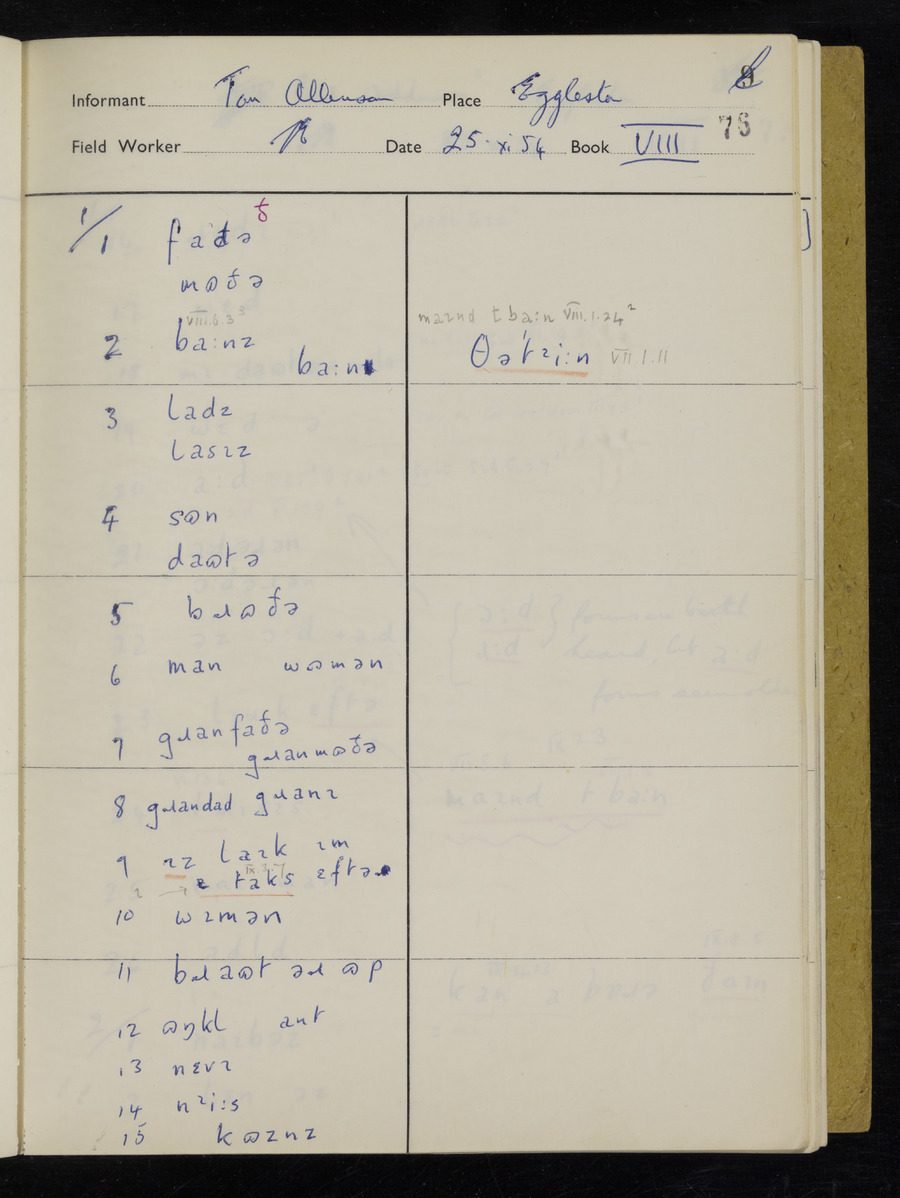 Informant Tom Allenson Place Eggleston 8
Field Worker Date 25. xi 54 Book VIII 76
1/1 faðə ð
mɷðə
VIII.6.3³
2 ba:nz ba:n
ma ɪnd t ba:n VIII.1.24²
θətɪi:n VII.1.11
3 ladz
lasɪz
4 sɷn
daɷtə
5 bɹɷðə
6 man wɷmən
7 gɹanfaðə
gɹanmɷðə
8 gɹandad gɹanɪ
9 ɪz laɪk ɪm
IX.3.7
ɛ taks ɛftə
10 wɪmən
11 bɹaɷt əɹ ɷp
12 ɷŋkl ant
13 nɛvɪ
14 nɪi:s
15 kɷznz